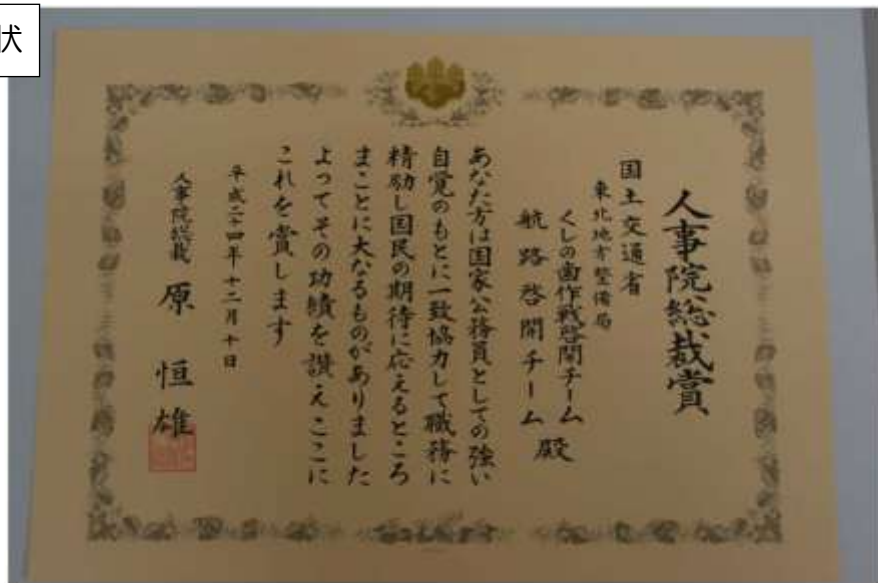 状
人事院総裁賞
国土交通省
東北地方整備局
くしの歯作戦啓開チーム
航路啓開チーム 殿
あなた方は国家公務員としての強い
自覚のもとに一致協力して職務に
精励し国民の期待に応えるところ
まことに大なるものがありました
よってその功績を讃えここに
これを賞します
平成二十四年十二月十日
人事院総裁 原 恒雄